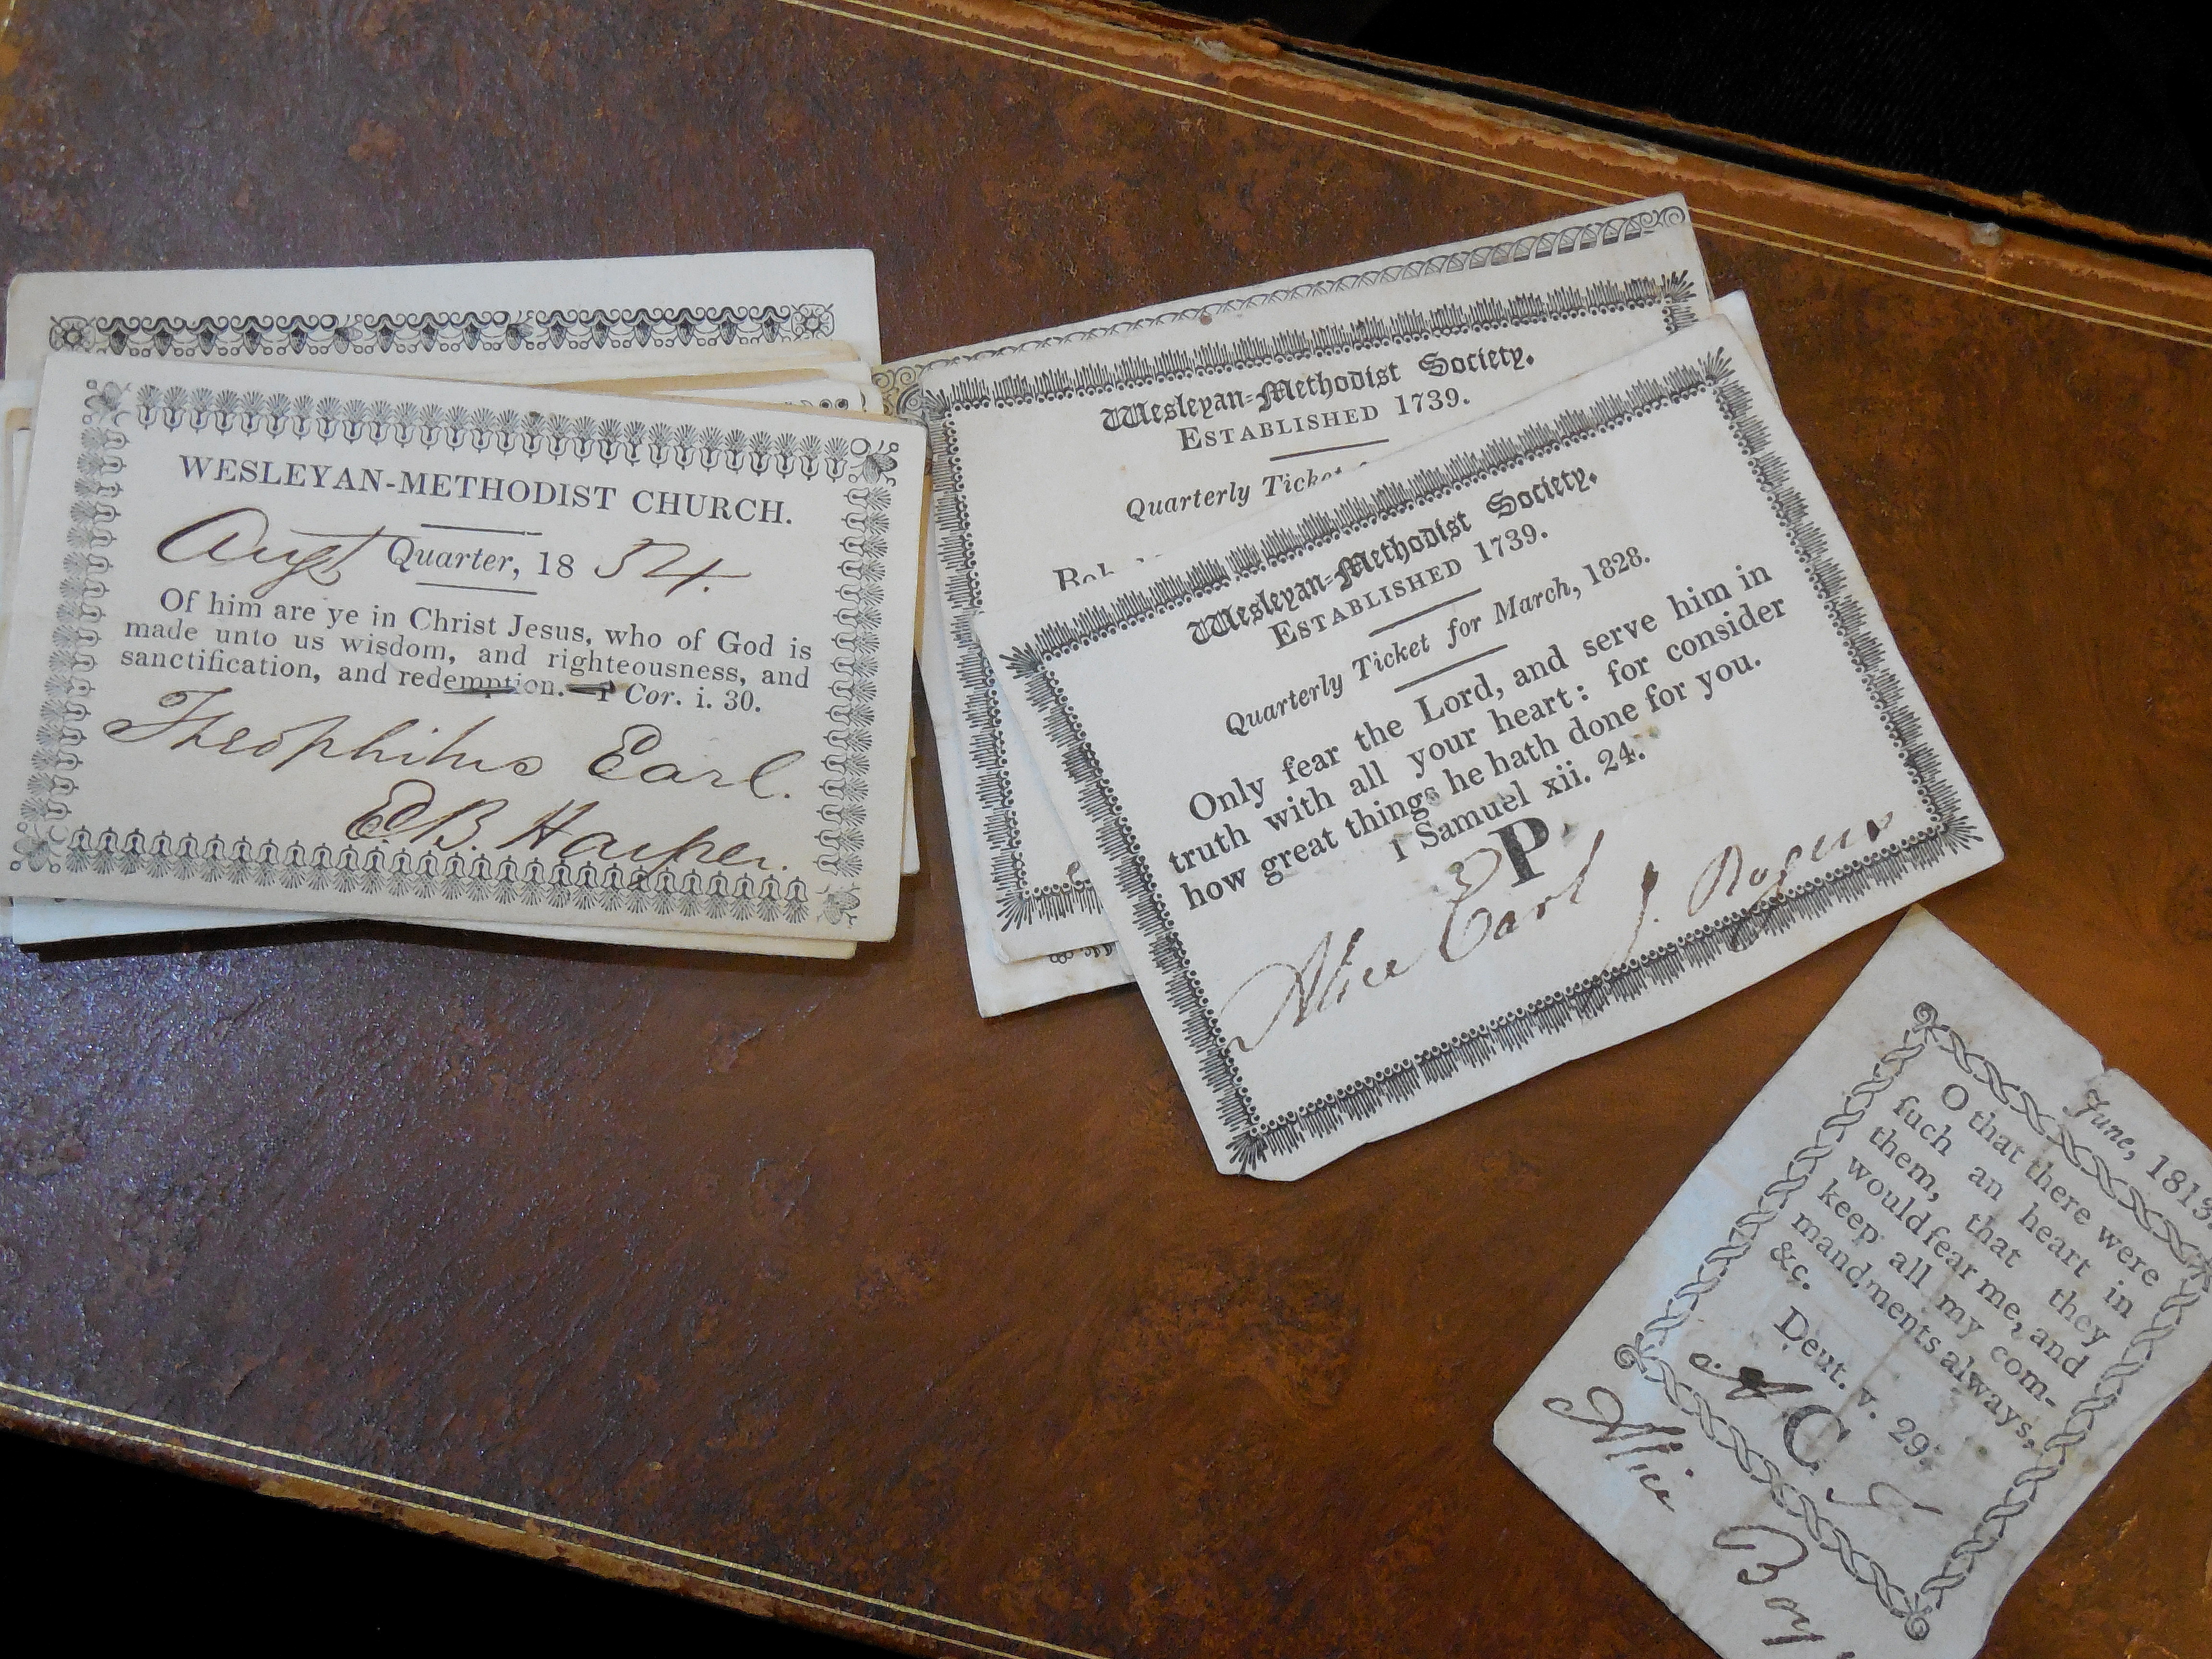 WESLEYAN-METHODIST CHURCH.
Augt Quarter, 18 54.
Of him are ye in Christ Jesus, who of God is
made unto us wisdom, and righteousness, and
sanctification, and redemption. 1 Cor. i. 30.
Theophilus Earl.
E.B. Harper.
Wesleyan-Methodist Society.
ESTABLISHED 1739.
Quarterly Ticket
Wesleyan-Methodist Society.
ESTABLISHED 1739.
Quarterly Ticket for March, 1828.
Only fear the Lord, and serve him in
truth with all your heart: for consider
how great things he hath done for you.
1 Samuel xii. 24.
P
Alice Earl J. Rogers
June, 1813.
O that there were
ſuch an heart in
them, that they
would fear me, and
keep all my com-
mandments always,
&c. Deut. v. 29.
C
Alice